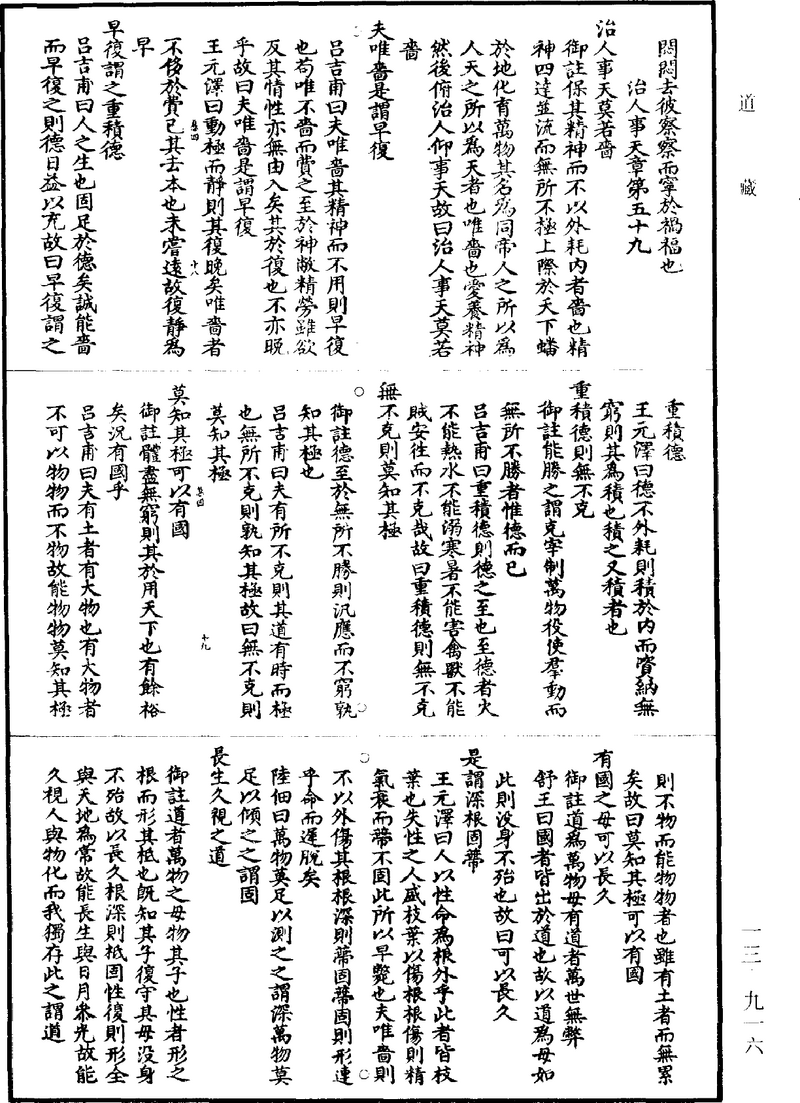 悶悶去彼察察而寧於禍福也
治人事天章第五十九
治人事天莫若嗇
御註保其精神而不以外耗內者嗇也精
神四達並流而無所不極上際於天下蟠
於地化育萬物其名為同帝人之所以為
人天之所以為天者也唯嗇也愛養精神
然後俯治人仰事天故曰治人事天莫若
嗇
夫唯嗇是謂早復
呂吉甫曰夫唯嗇其精神而不用則早復
也苟唯不嗇而費之至於神敝精勞雖欲
反其情性亦無由入矣其於復也不亦晚
乎故曰夫唯嗇是謂早復
王元澤曰動極而靜則其復晚矣唯嗇者
不侈於費已其去本也未嘗遠故復靜為
早
早復謂之重積德
呂吉甫曰人之生也固足於德矣誠能嗇
而早復之則德日益以充故曰早復謂之
重積德
王元澤曰德不外耗則積於內而資納無
窮則其為積也積之又積者也
重積德則無不克
御註能勝之謂克宰制萬物役使羣動而
無所不勝者惟德而已
呂吉甫曰重積德則德之至也至德者火
不能熱水不能溺寒暑不能害禽獸不能
賊安往而不克哉故曰重積德則無不克
無不克則莫知其極
御註德至於無所不勝則汎應而不窮孰
知其極也
呂吉甫曰夫有所不克則其道有時而極
也無所不克則孰知其極故曰無不克則
莫知其極
莫知其極可以有國
御註體盡無窮則其於用天下也有餘裕
矣況有國乎
呂吉甫曰夫有土者有大物也有大物者
不可以物物而不物故能物物莫知其極
則不物而能物物者也雖有土者而無累
矣故曰莫知其極可以有國
有國之母可以長久
御註道為萬物母有道者萬世無弊
舒王曰國者皆出於道也故以道為母如
此則没身不殆也故曰可以長久
是謂深根固蔕
王元澤曰人以性命為根外乎此者皆枝
葉也失性之人盛枝葉以傷根根傷則精
氣衰而蔕不固此所以早斃也夫唯嗇則
不以外傷其根根深則蔕固蔕固則形連
乎命而遲脫矣
陸佃曰萬物莫足以測之之謂深萬物莫
足以傾之之謂固
長生久視之道
御註道者萬物之母物其子也性者形之
根而形其柢也既知其子復守其母没身
不殆故以長久根深則柢固性復則形全
與天地為常故能長生與日月參光故能
久視人與物化而我獨存此之謂道
道藏
一三·九一六